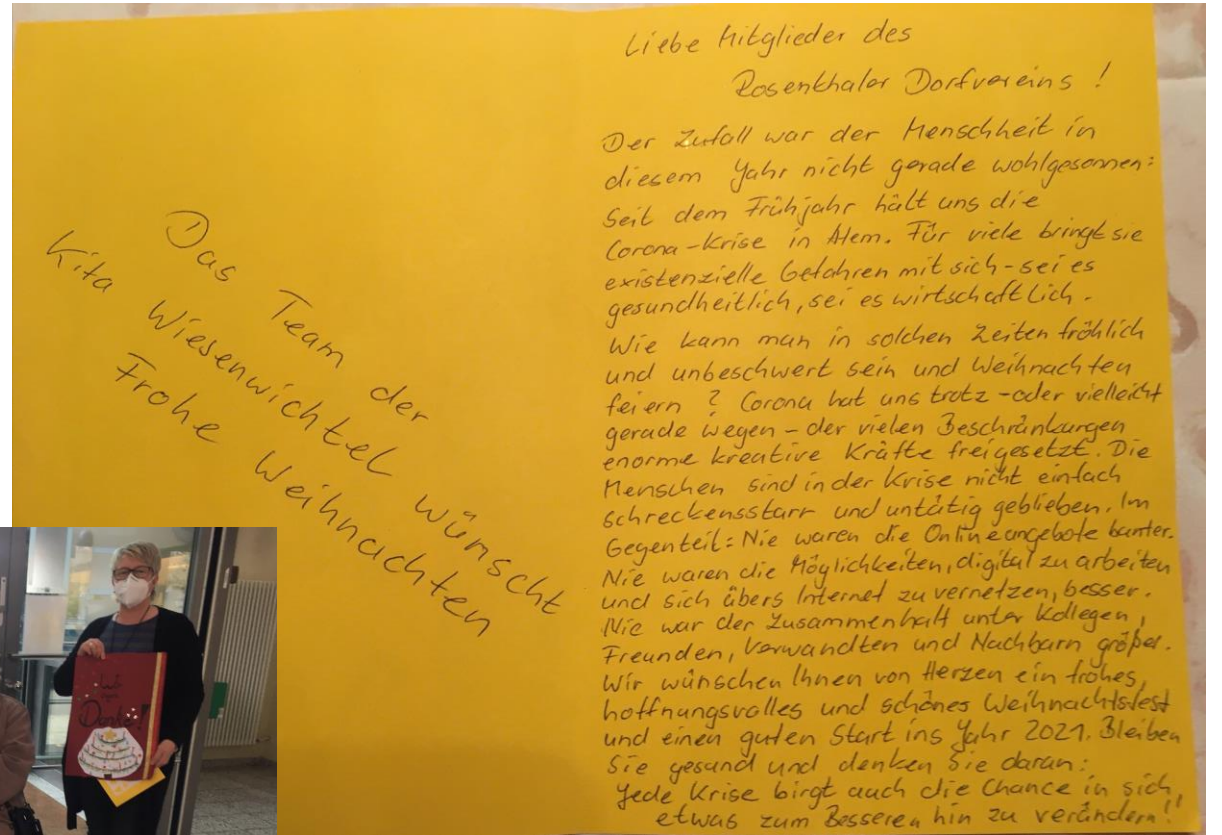 Das Team der
Kita Wiesenwichtel wünscht
Frohe Weihnachten
Liebe Mitglieder des
Rosenthaler Dorfvereins !
Der Zufall war der Menschheit in
diesem Jahr nicht gerade wohlgesonnen:
Seit dem Frühjahr hält uns die
Corona-Krise in Atem. Für viele bringt sie
existenzielle Gefahren mit sich - sei es
gesundheitlich, sei es wirtschaftlich.
Wie kann man in solchen Zeiten fröhlich
und unbeschwert sein und Weihnachten
feiern ? Corona hat uns trotz - oder vielleicht
gerade wegen - der vielen Beschränkungen
enorme kreative Kräfte freigesetzt. Die
Menschen sind in der Krise nicht einfach
schreckensstarr und untätig geblieben. Im
Gegenteil: Nie waren die Onlineangebote bunter.
Nie waren die Möglichkeiten, digital zu arbeiten
und sich übers Internet zu vernetzen, besser.
Nie war der Zusammenhalt unter Kollegen,
Freunden, Verwandten und Nachbarn größer.
Wir wünschen Ihnen von Herzen ein frohes,
hoffnungsvolles und schönes Weihnachtsfest
und einen guten Start ins Jahr 2021. Bleiben
Sie gesund und denken Sie daran:
Jede Krise birgt auch die Chance in sich,
etwas zum Besseren hin zu verändern!"
Danke!